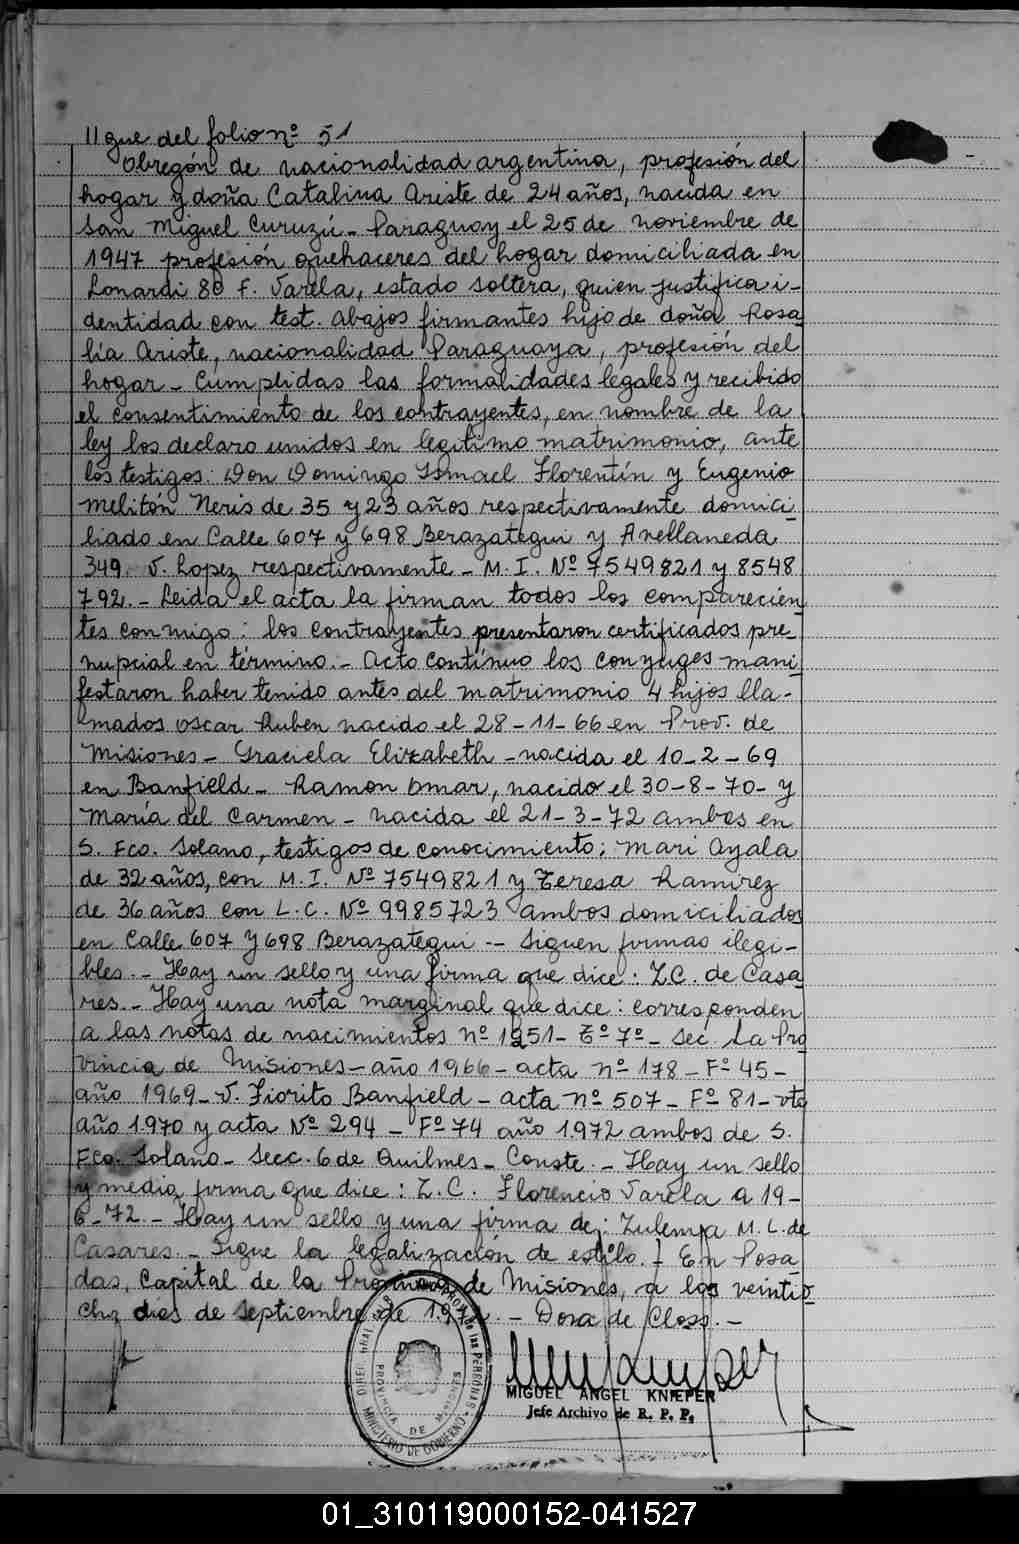 //gue del folio nº 51
Obregón de nacionalidad argentina, profesión del
hogar y doña Catalina Ariste de 24 años, nacida en
San Miguel Curuzú - Paraguay el 25 de noviembre de
1947 profesión quehaceres del hogar domiciliada en
Lonardi 80 F. Varela, estado soltera, quien justifica i-
dentidad con test. abajos firmantes hijo de doña Rosa
lía Ariste, nacionalidad Paraguaya, profesión del
hogar - Cumplidas las formalidades legales y recibido
el consentimiento de los contrayentes, en nombre de la
ley los declaro unidos en legítimo matrimonio, ante
los testigos: Don Domingo Ismael Florentín y Eugenio
Melitón Neris de 35 y 23 años respectivamente domici
liado en Calle 607 y 698 Berazategui y Avellaneda
349. V. Lopez respectivamente - M. I. Nº 7549821 y 8548
792. - Leida el acta la firman todos los comparecien
tes conmigo: los contrayentes presentaron certificados pre-
nupcial en término. - Acto contínuo los conyuges mani
festaron haber tenido antes del matrimonio 4 hijos lla-
mados Oscar Ruben nacido el 28-11-66 en Prov. de
Misiones - Graciela Elizabeth - nacida el 10-2-69
en Banfield - Ramon Omar, nacido el 30-8-70- y
María del Carmen - nacida el 21-3-72 ambos en
S. Fco. Solano, testigos de conocimiento; Mari Ayala
de 32 años, con M. I. Nº 7549821 y Teresa Ramirez
de 36 años con L. C. Nº 9985723 ambos domiciliados
en Calle 607 y 698 Berazategui -- Siguen firmas ilegi-
bles. - Hay un sello y una firma que dice: Z.C. de Casa
res. - Hay una nota marginal que dice: corresponden
a las notas de nacimientos nº 1251 - Tº 7º - Sec. La Pro
vincia de Misiones - año 1966 - acta nº 178 - Fº 45 -
año 1969 - V. Fiorito Banfield - acta nº 507 - Fº 81 - vto
año 1970 y acta Nº 294 - Fº 74 año 1972 ambos de S.
Fco. Solano - Secc. 6 de Quilmes - Conste. - Hay un sello
y media firma que dice: Z. C. Florencio Varela a 19-
6-72. - Hay un sello y una firma de: Zulema M. L. de
Casares - Sigue la legalización de estilo. En Posa
das, Capital de la Provincia de Misiones, a los veintio
cho días de septiembre de 1972. - Dora de Closs. -
MIGUEL ANGEL KNIEPER
Jefe Archivo de R. P. P.
PROVINCIA DE MISIONES
MINISTERIO DE GOBIERNO
01_310119000152-041527